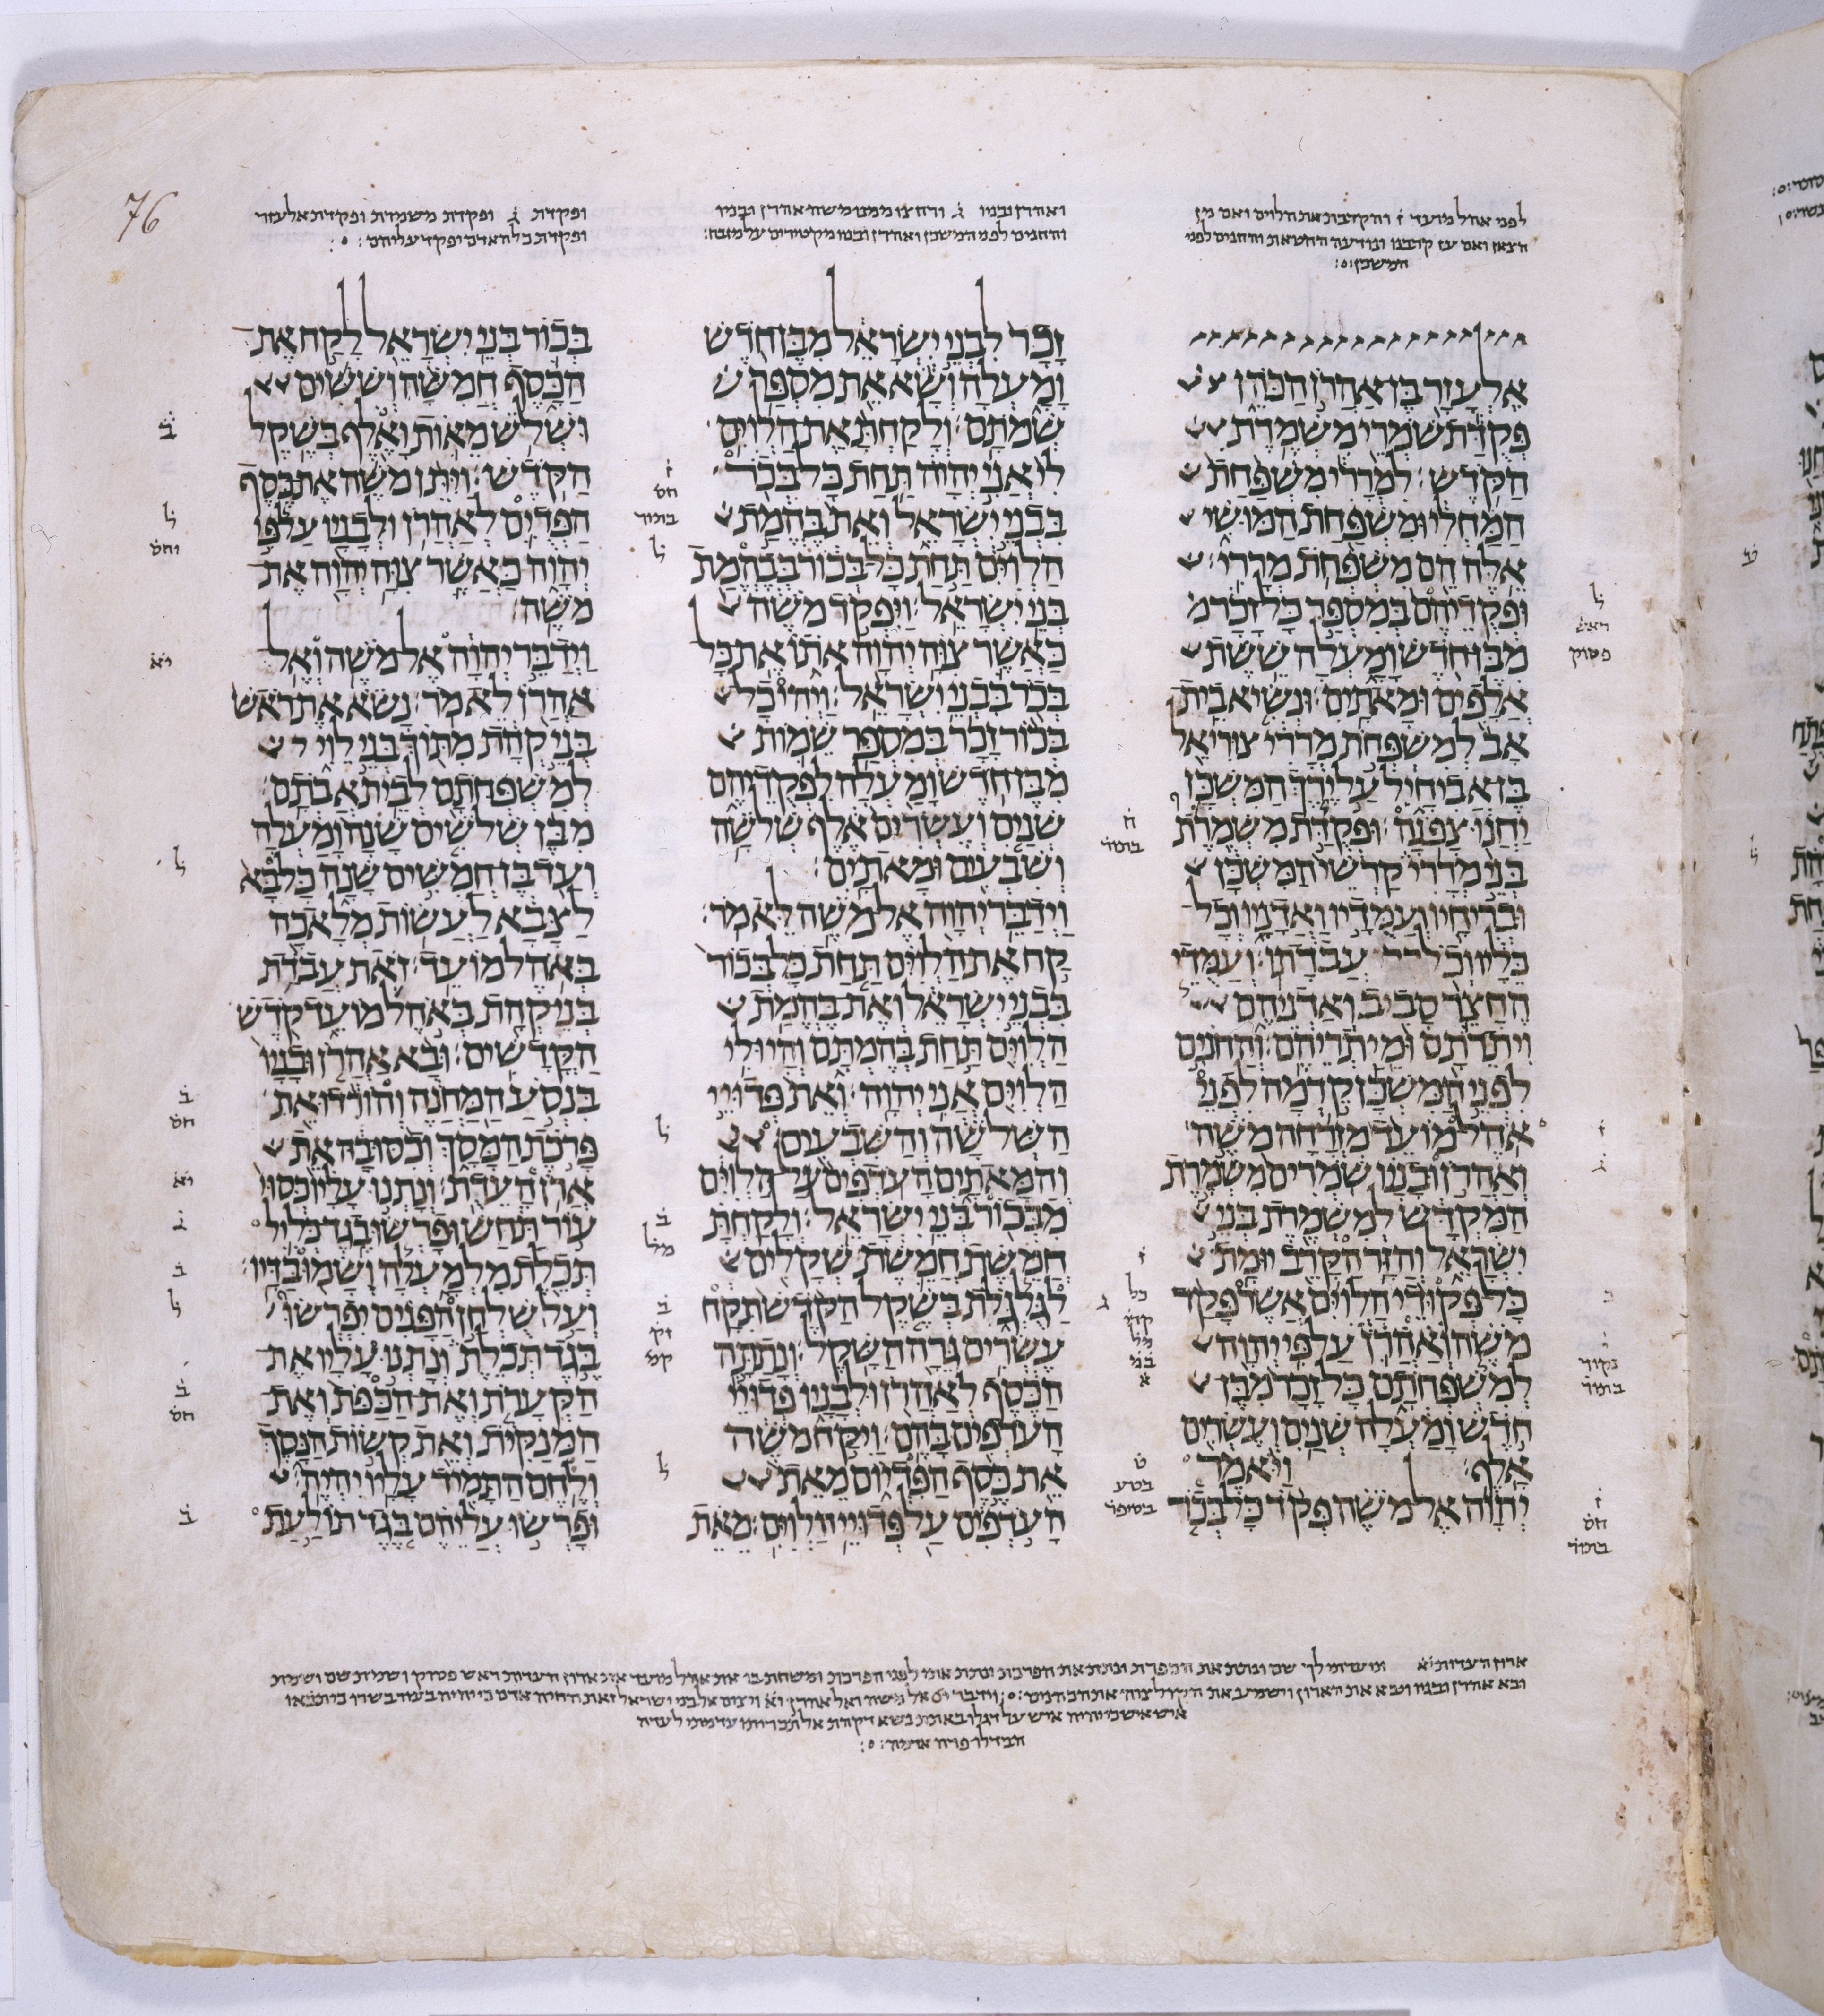 לפני אהל מועד ז והקרבת את הלוים ואם מן
הצאן ואם עז קרבנו ונודעה החטאת והחנים לפני
המשכן׃
ואהרן ובניו ג ורחצו ממנו משה אהרן ובניו
והחנים לפני המשכן ואהרן ובניו מקטירים על מזבח׃
ופקדת ג ופקדת משמרת ופקדת אלעזר
ופקדת כל האדם יפקד עליהם׃
אלעזר בן אהרן הכהן
פקדת שמרי משמרת
הקדש׃ למררי משפחת
המחלי ומשפחת המושי
אלה הם משפחת מררי׃
ופקדיהם במספר כל זכר מ
מבן חדש ומעלה ששת
אלפים ומאתים׃ ונשיא בית
אב למשפחת מררי צוריאל
בן אביחיל על ירך המשכן
יחנו צפנה׃ ופקדת משמרת
בני מררי קרשי המשכן
ובריחיו ועמדיו ואדניו וכל
כליו וכל עבדתו׃ ועמדי
החצר סביב ואדניהם
ויתדתם ומיתריהם׃ והחנים
לפני המשכן קדמה לפני
אהל מועד מזרחה משה
ואהרן ובניו שמרים משמרת
המקדש למשמרת בני
ישראל והזר הקרב יומת׃
כל פקודי הלוים אשר פקד
משה ואהרן על פי יהוה
למשפחתם כל זכר מבן
חדש ומעלה שנים ועשרים
אלף׃ ויאמר
יהוה אל משה פקד כל בכר
זכר לבני ישראל מבן חדש
ומעלה ושא את מספר ש
שמתם׃ ולקחת את הלוים
לי אני יהוה תחת כל בכר
בבני ישראל ואת בהמת
הלוים תחת כל בכור בבהמת
בני ישראל׃ ויפקד משה
כאשר צוה יהוה אתו את כל
בכר בבני ישראל׃ ויהי כל
בכור זכר במספר שמות
מבן חדש ומעלה לפקדיהם
שנים ועשרים אלף שלשה
ושבעים ומאתים׃
וידבר יהוה אל משה לאמר׃
קח את הלוים תחת כל בכור
בבני ישראל ואת בהמת
הלוים תחת בהמתם והיו לי
הלוים אני יהוה׃ ואת פדויי
השלשה והשבעים
והמאתים העדפים על הלוים
מבכור בני ישראל׃ ולקחת
חמשת חמשת שקלים
לגלגלת בשקל הקדש תקח
עשרים גרה השקל׃ ונתתה
הכסף לאהרן ולבניו פדויי
העדפים בהם׃ ויקח משה
את כסף הפדיום מאת
העדפים על פדויי הלוים׃ מאת
בכור בני ישראל לקח את
הכסף חמשה וששים
ושלש מאות ואלף בשקל
הקדש׃ ויתן משה את כסף
הפדים לאהרן ולבניו על פי
יהוה כאשר צוה יהוה את
משה׃
וידבר יהוה אל משה ואל
אהרן לאמר׃ נשא את ראש
בני קהת מתוך בני לוי
למשפחתם לבית אבתם׃
מבן שלשים שנה ומעלה
ועד בן חמשים שנה כל בא
לצבא לעשות מלאכה
באהל מועד׃ זאת עבדת
בני קהת באהל מועד קדש
הקדשים׃ ובא אהרן ובניו
בנסע המחנה והורדו את
פרכת המסך וכסו בה את
ארן העדת׃ ונתנו עליו כסוי
עור תחש ופרשו בגד כליל
תכלת מלמעלה ושמו בדיו׃
ועל שלחן הפנים יפרשו
בגד תכלת ונתנו עליו את
הקערת ואת הכפת ואת
המנקית ואת קשות הנסך
ולחם התמיד עליו יהיה׃
ופרשו עליהם בגד תולעת
76